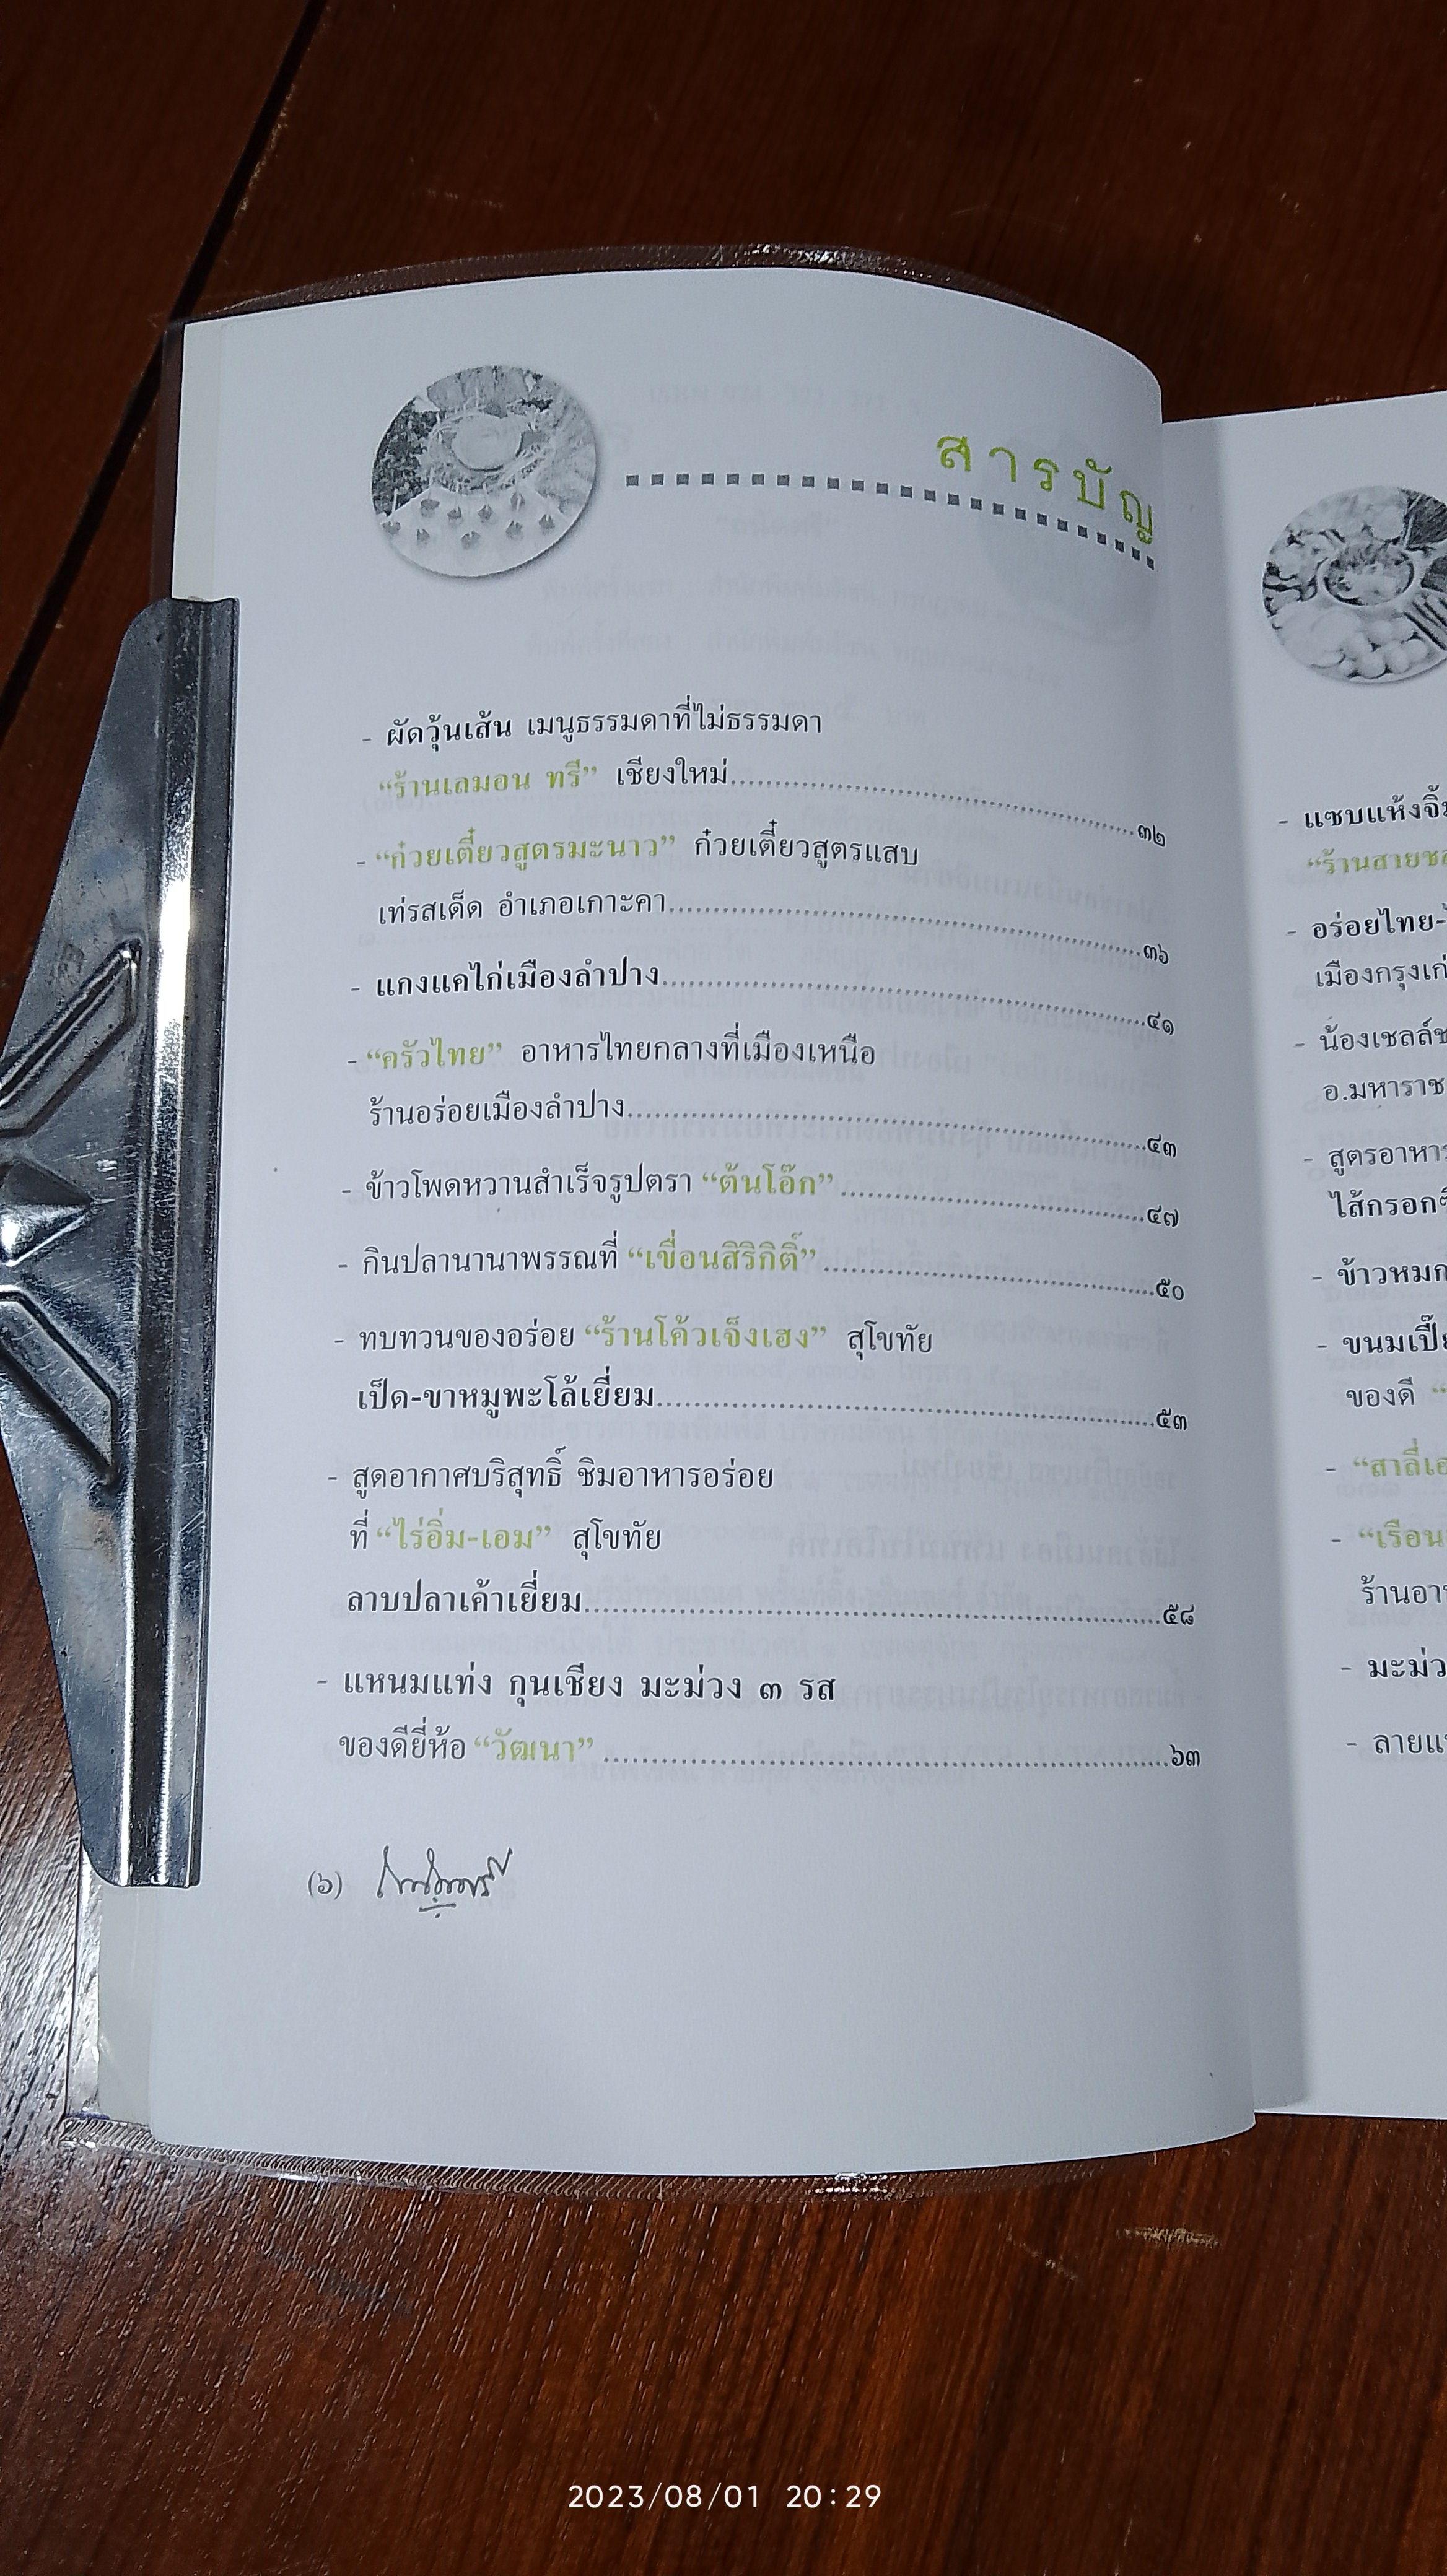 สารบัญ
- ผัดวุ้นเส้น เมนูธรรมดาที่ไม่ธรรมดา
“ร้านเลมอน ทรี” เชียงใหม่...............................................๓๒
- “ก๋วยเตี๋ยวสูตรมะนาว” ก๋วยเตี๋ยวสูตรแสบ
เท่รสเด็ด อำเภอเกาะคา.......................................................๓๖
- แกงแคไก่เมืองลำปาง.......................................................๔๑
- “ครัวไทย” อาหารไทยกลางที่เมืองเหนือ
ร้านอร่อยเมืองลำปาง...........................................................๔๓
- ข้าวโพดหวานสำเร็จรูปตรา “ต้นโอ๊ก”...................................๔๗
- กินปลานานาพรรณที่ “เขื่อนสิริกิติ์”......................................๕๐
- ทบทวนของอร่อย “ร้านโค้วเจ็งเฮง” สุโขทัย
เป็ด-ขาหมูพะโล้เยี่ยม..........................................................๕๓
- สูดอากาศบริสุทธิ์ ชิมอาหารอร่อย
ที่ “ไร่อิ่ม-เอม” สุโขทัย
ลาบปลาเค้าเยี่ยม.................................................................๕๘
- แหนมแท่ง กุนเชียง มะม่วง ๓ รส
ของดียี่ห้อ “วัฒนา” ..............................................................๖๓
(๖)
- แซบแห้งจิ้ม
“ร้านสายชล
- อร่อยไทย-
เมืองกรุงเก่
- น้องเชลล์ช
อ.มหาราช
- สูตรอาหาร
ไส้กรอก
- ข้าวหมก
- ขนมเปี๊ย
ของดี “
- “สาลี่เอ
- “เรือน
ร้านอา
- มะม่ว
- ลายแ
2023/08/01 20:29